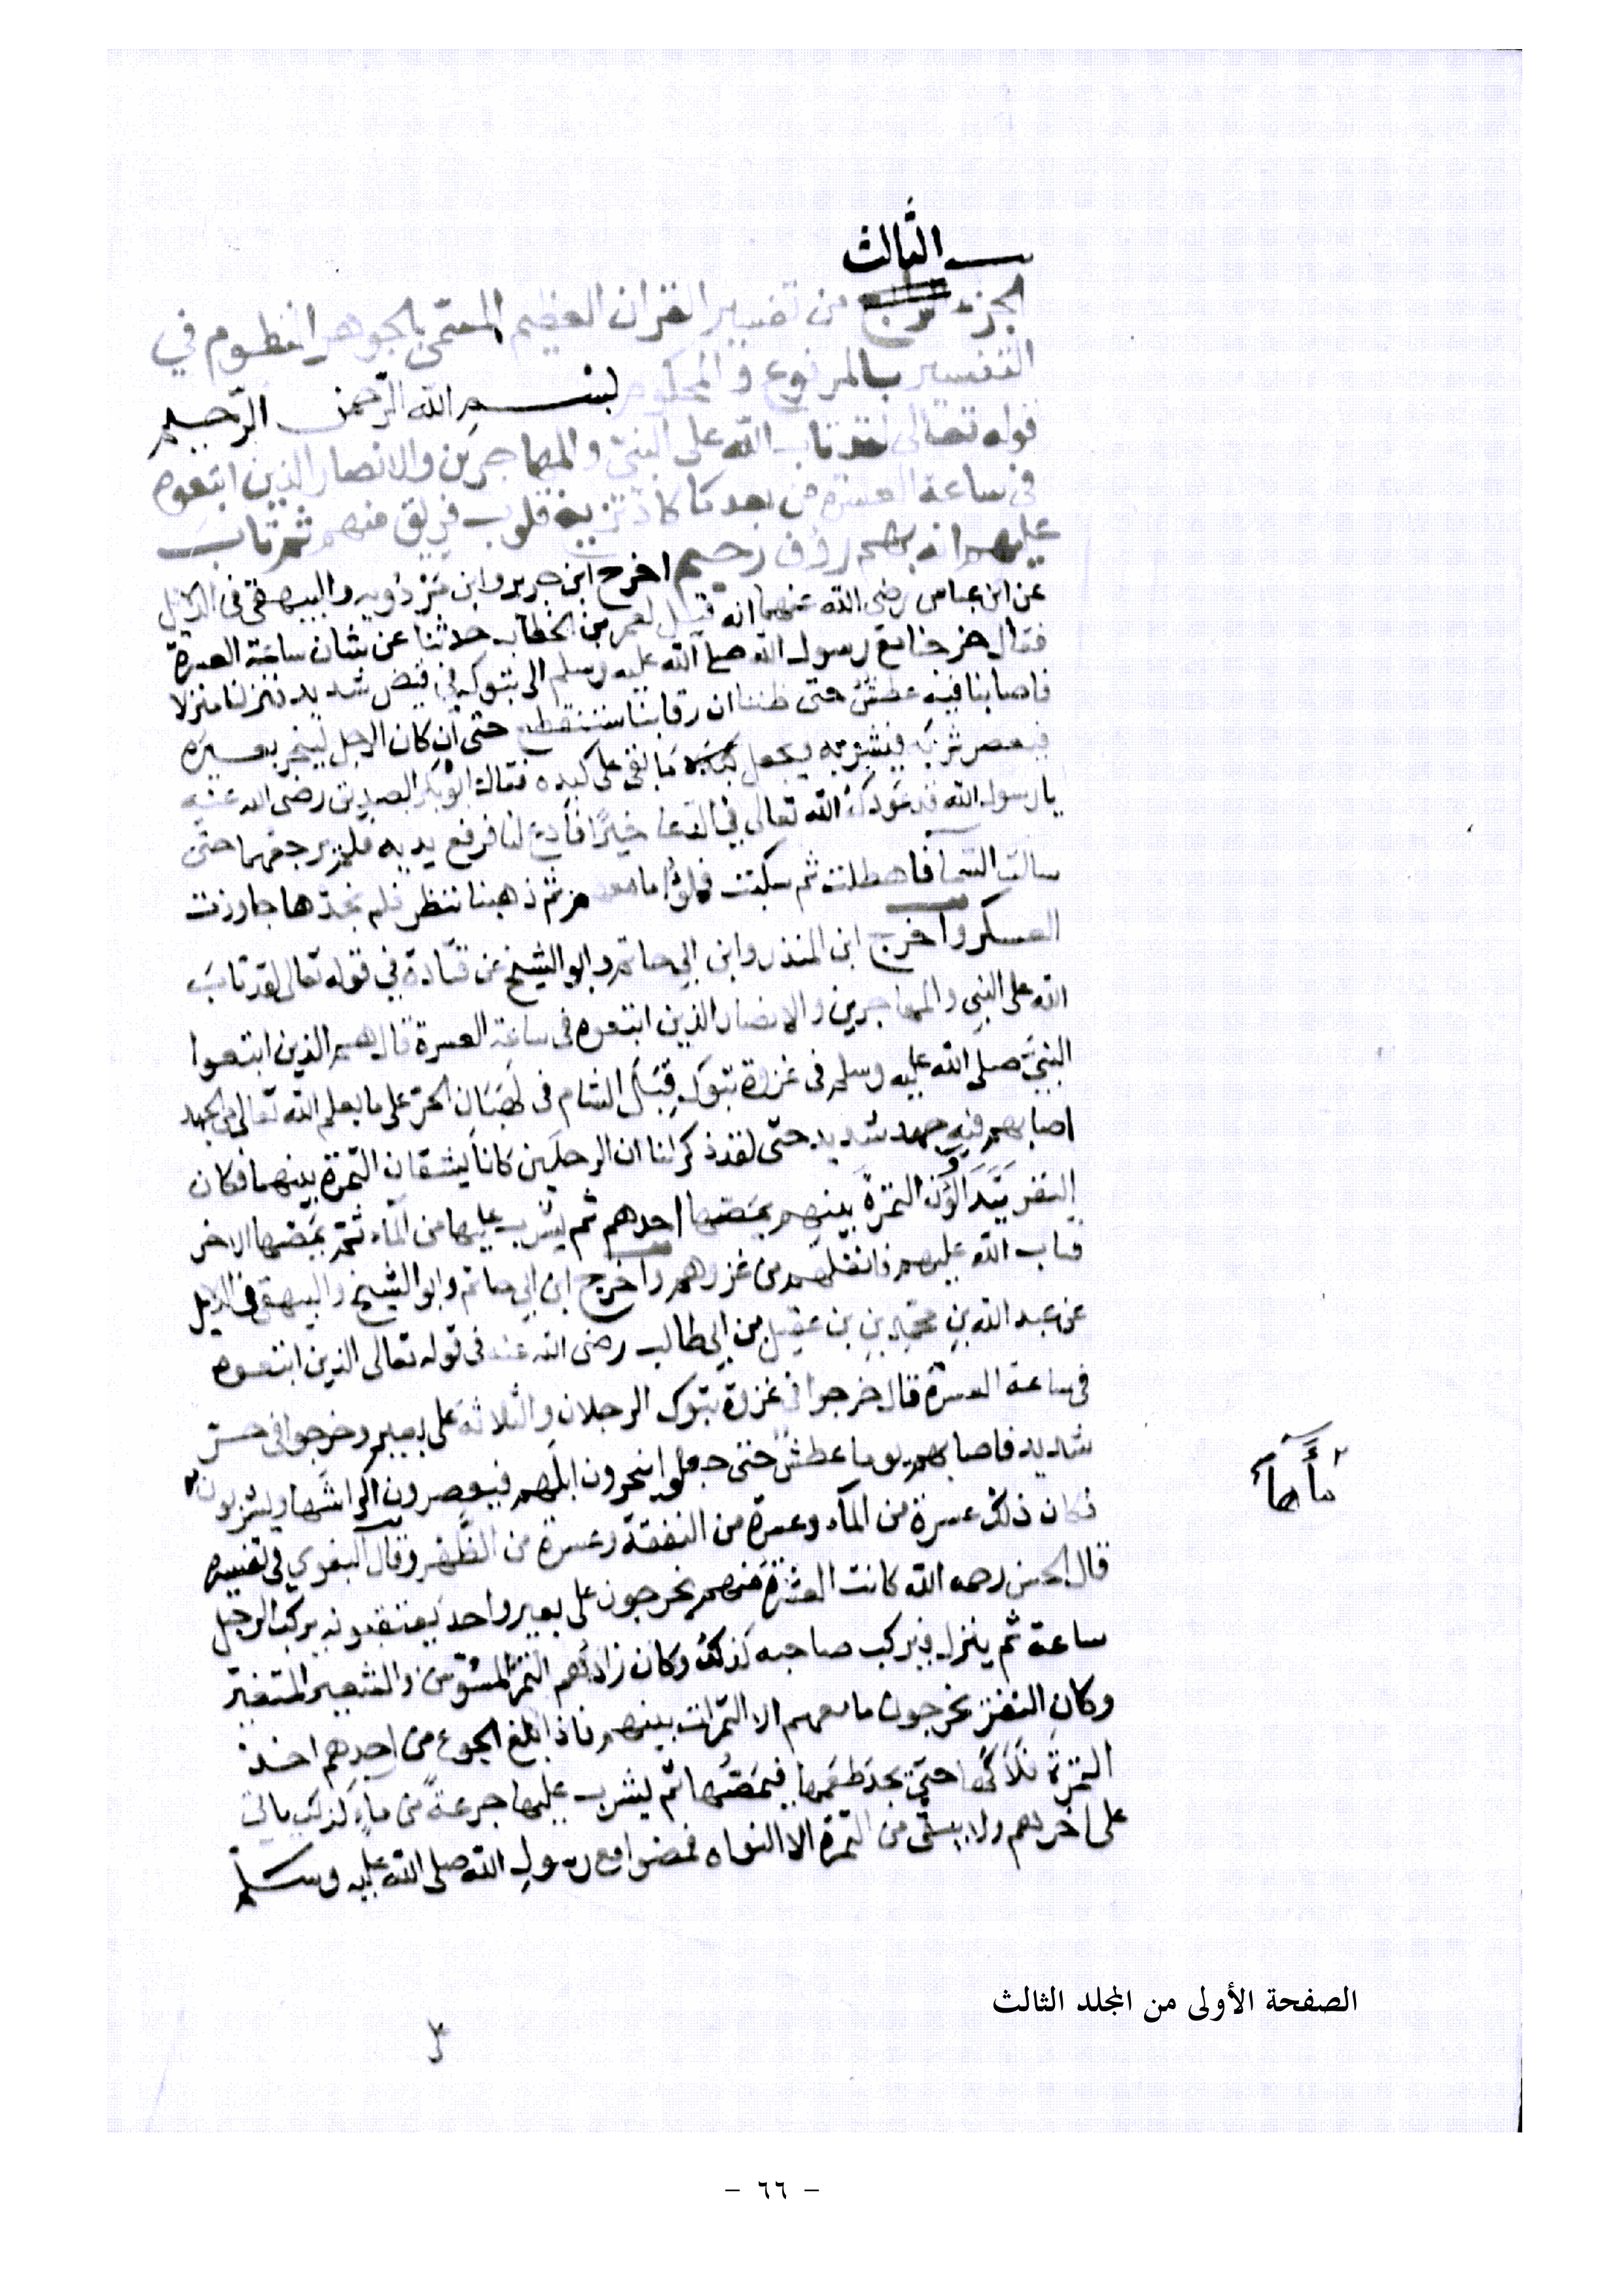 الثالث
الجزء الرابع من تفسير القران العظيم المسمى بالجوهر المنظوم في
التفسير بالمرفوع والمحكوم
بسم الله الرحمن الرحيم
قوله تعالى لقد تاب الله على النبي والمهاجرين والانصار الذين اتبعوه
في ساعة العسرة من بعد ما كاد تزيغ قلوب فريق منهم ثم تاب
عليهم انه بهم رؤف رحيم اخرج ابن جرير وابن مردويه والبيهقي في الدلايل
عن ابن عباس رضي الله عنهما انه قيل لعمر بن الخطاب حدثنا عن شان ساعة العسرة
فقال خرجنا مع رسول الله صلى الله عليه وسلم الى تبوك في قيض شديد فنزلنا منزلا
فاصابنا فيه عطش حتى ظننا ان رقابنا ستنقطع حتى ان كان الرجل لينحر بعيره
فيعصر فيشربه ويجعل ما بقي على كبده فقال ابو بكر الصديق رضي الله عنه
يا رسول الله قد عودك الله تعالى في الدعا خيرا فادع لنا فرفع يديه فلم يرجعهما حتى
سالت السما فاهطلت ثم سكبت فملؤا ما معهم ثم ذهبنا ننظر فلم نجدها جاوزت
العسكر واخرج ابن المنذر وابن ابي حاتم وابو الشيخ عن قتادة في قوله تعالى لقد تاب
الله على النبي والمهاجرين والانصار الذين اتبعوه في ساعة العسرة قال هم الذين اتبعوا
النبي صلى الله عليه وسلم في غزوة تبوك قبل الشام في لهبان الحر على ما يعلم الله تعالى من الجهد
اصابهم فيه جهد شديد حتى لقد ذكر لنا ان الرجلين كانا يشقان التمرة بينهما فكان
النفر يتداولون التمرة بينهم يمصها احدهم ثم يشرب عليها من الماء ثم يمصها الاخر
فتاب الله عليهم فاقفلهم من غزوهم واخرج ابن ابي حاتم وابو الشيخ والبيهقي في الدلايل
عن عبد الله بن محمد بن عقيل بن ابي طالب رضي الله عنه في قوله تعالى الذين اتبعوه
في ساعة العسرة قال خرجوا في غزوة تبوك الرجلان والثلاثة على بعير وخرجوا في حر
شديد فاصابهم يوما عطش حتى جعلوا ينحرون ابلهم فيعصرون اكراشها ويشربون
ماءها
فكان ذلك عسرة من الماء وعسرة من النفقة وعسرة من الظهر وقال البغوي في تفسيره
قال الحسن رحمه الله كانت العشرة منهم يخرجون على بعير واحد يعتقبونه يركب الرجل
ساعة ثم ينزل فيركب صاحبه كذلك وكان زادهم التمر المسوس والشعير المتغير
وكان النفر يخرجون ما معهم الا التمرات بينهم فاذا بلغ الجوع من احدهم اخذ
التمرة فلاكها حتى يجد طعمها فيمصها ثم يشرب عليها جرعة من ماء كذلك ياتي
على اخرهم ولا يبقى من التمرة الا النواه فمضوا مع رسول الله صلى الله عليه وسلم
الصفحة الأولى من المجلد الثالث
- ٦٦ -